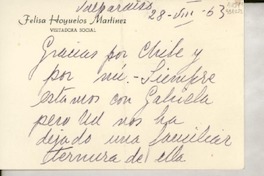 Valparaíso,
28-VIII-63
Felisa Hoyuelos Martinez
VISITADORA SOCIAL
Gracias por Chile y
por mi.- Siempre
estamos con Gabriela
pero Ud nos ha
dejado una familiar
ternura de ella